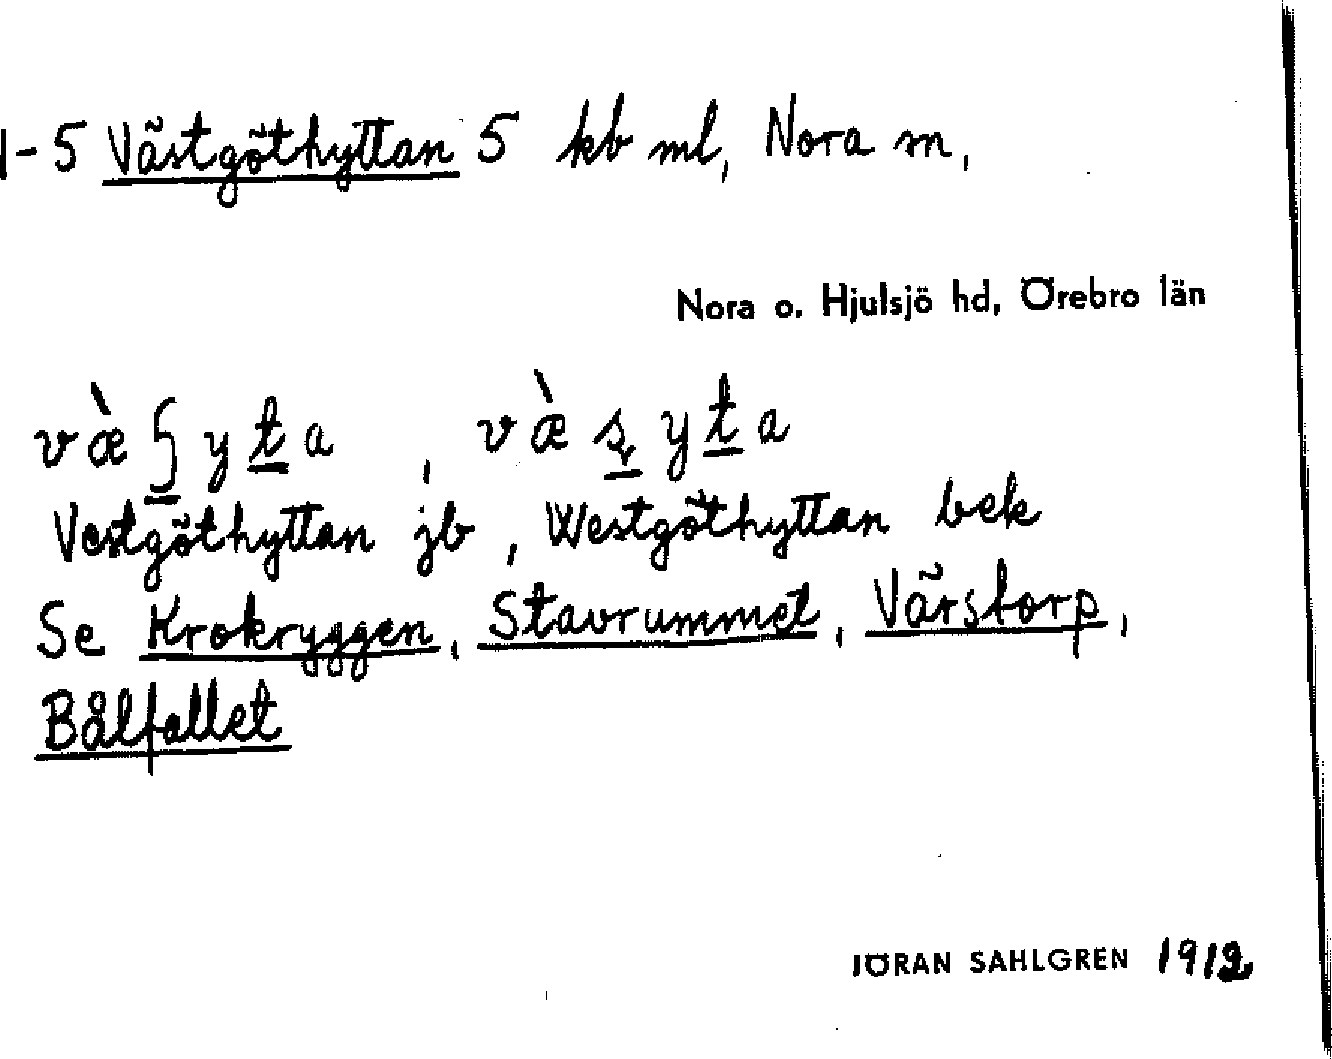 1-5 Västgöthyttan 5 kb ml, Nora m,
Nora o. Hjulsjö hd, Örebro län
Vestgöthyttan jb, Westgöthyttan bek
Se Krokryggen, Stavrummet, Värstorp,
Bålfallet
JÖRAN SAHLGREN 1912